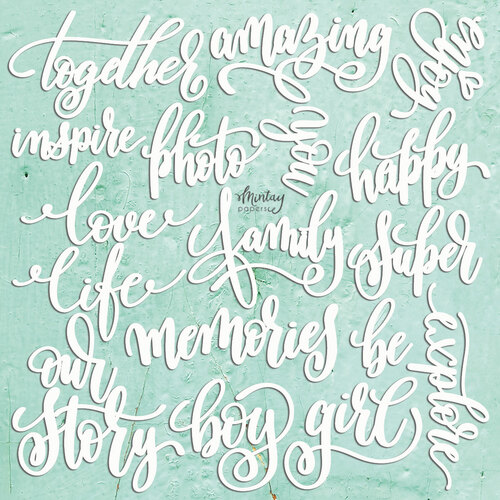 together
amazing
enjoy
inspire
photo
you
happy
Mintay
papers
love
family
super
life
memories
be
explore
our
story
boy
girl